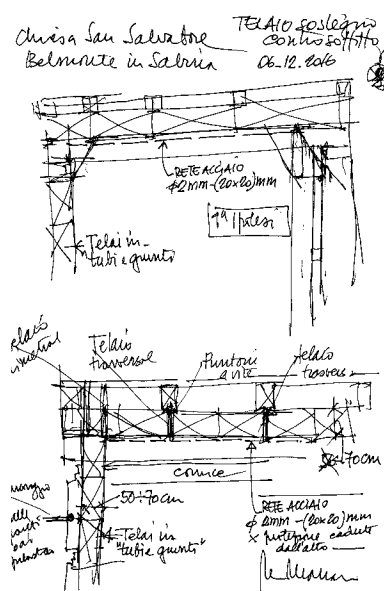 Chiesa San Salvatore
Belmonte in Sabina
TELAIO sostegno
Controsoffitto
06-12.2016
RETE ACCIAIO
φ2mm-(20x20)mm
1ª Ipotesi
Telai in
tubi e giunti
Telaio
trasversal
Puntoni
a vite
telaio
trasvers.
cornice
50÷70cm
70cm
Telai in
"tubi e giunti"
RETE ACCIAIO
φ 2mm-(20x20)mm
x protezione caduta
dall'alto